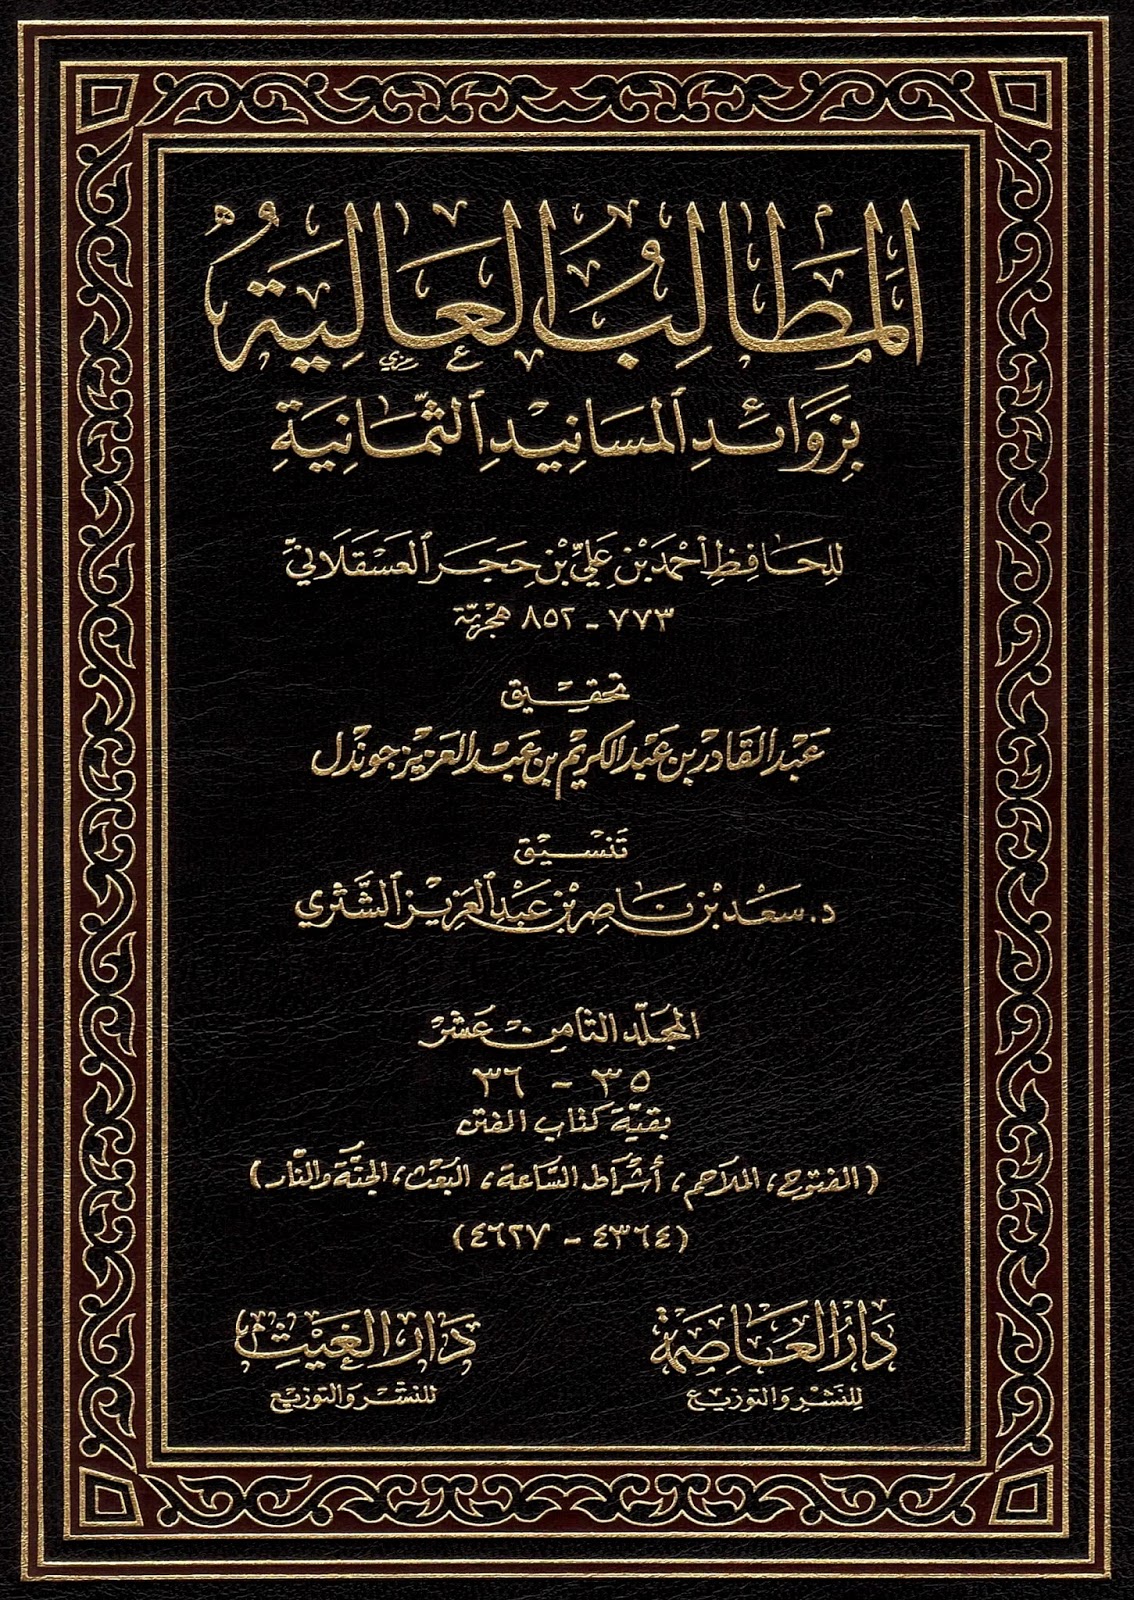 المَطَالِبُ العَالِيَةُ
بِزَوَائِدِ المَسَانِيْدِ الثَّمَانِيَةِ
لِلحَافِظِ أحْمَد بْن عَلِيّ بْن حَجَر العَسْقَلَانيّ
٧٧٣ - ٨٥٢ هجريّة
تحقيق
عَبْد القَادر بن عَبْد الكريم بن عَبْد العَزيز جوندل
تَنسيق
د. سَعْد بْن نَاصر بْن عَبْدِ العَزِيْز الشَّثري
المجلّد الثامن عشر
٣٥ - ٣٦
بقيّة كتاب الفتن
(الفتوح، الملاحم، أشْرَاط السَّاعة، البَعْث، الجنَّة والنَّار)
(٤٣٦٤ - ٤٦٢٧)
دَارُ العَاصِمَة
للنَشْرِ وَالتوزيع
دَارُ الغَيْث
للنشر والتوزيع